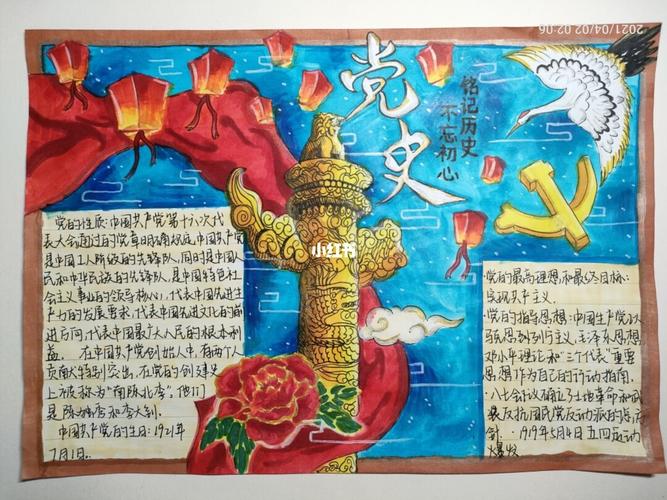 2021/04/02 02:06
党史
铭记历史
不忘初心
小红书
党的性质:中国共产党第十六次代
表大会通过的党章明确规定,中国共产党
是中国工人阶级的先锋队,同时是中国人
民和中华民族的先锋队,是中国特色社
会主义事业的领导核心,代表中国先进生
产力的发展要求,代表中国先进文化的前
进方向,代表中国最广大人民的根本利
益。 在中国共产党创始人中,有两个人
贡献特别突出,在党的创建史
上被称为“南陈北李”,他们
是陈独秀和李大钊.
中国共产党的生日:1921年
7月1日.
党的最高理想和最终目标:
实现共产主义.
党的指导思想:中国共产党以
马克思列宁主义,毛泽东思想,
邓小平理论和“三个代表”重要
思想作为自己的行动指南.
八七会议确立了土地革命和武
装反抗国民党反动派的总方
针.1919年5月4日五四运动
爆发